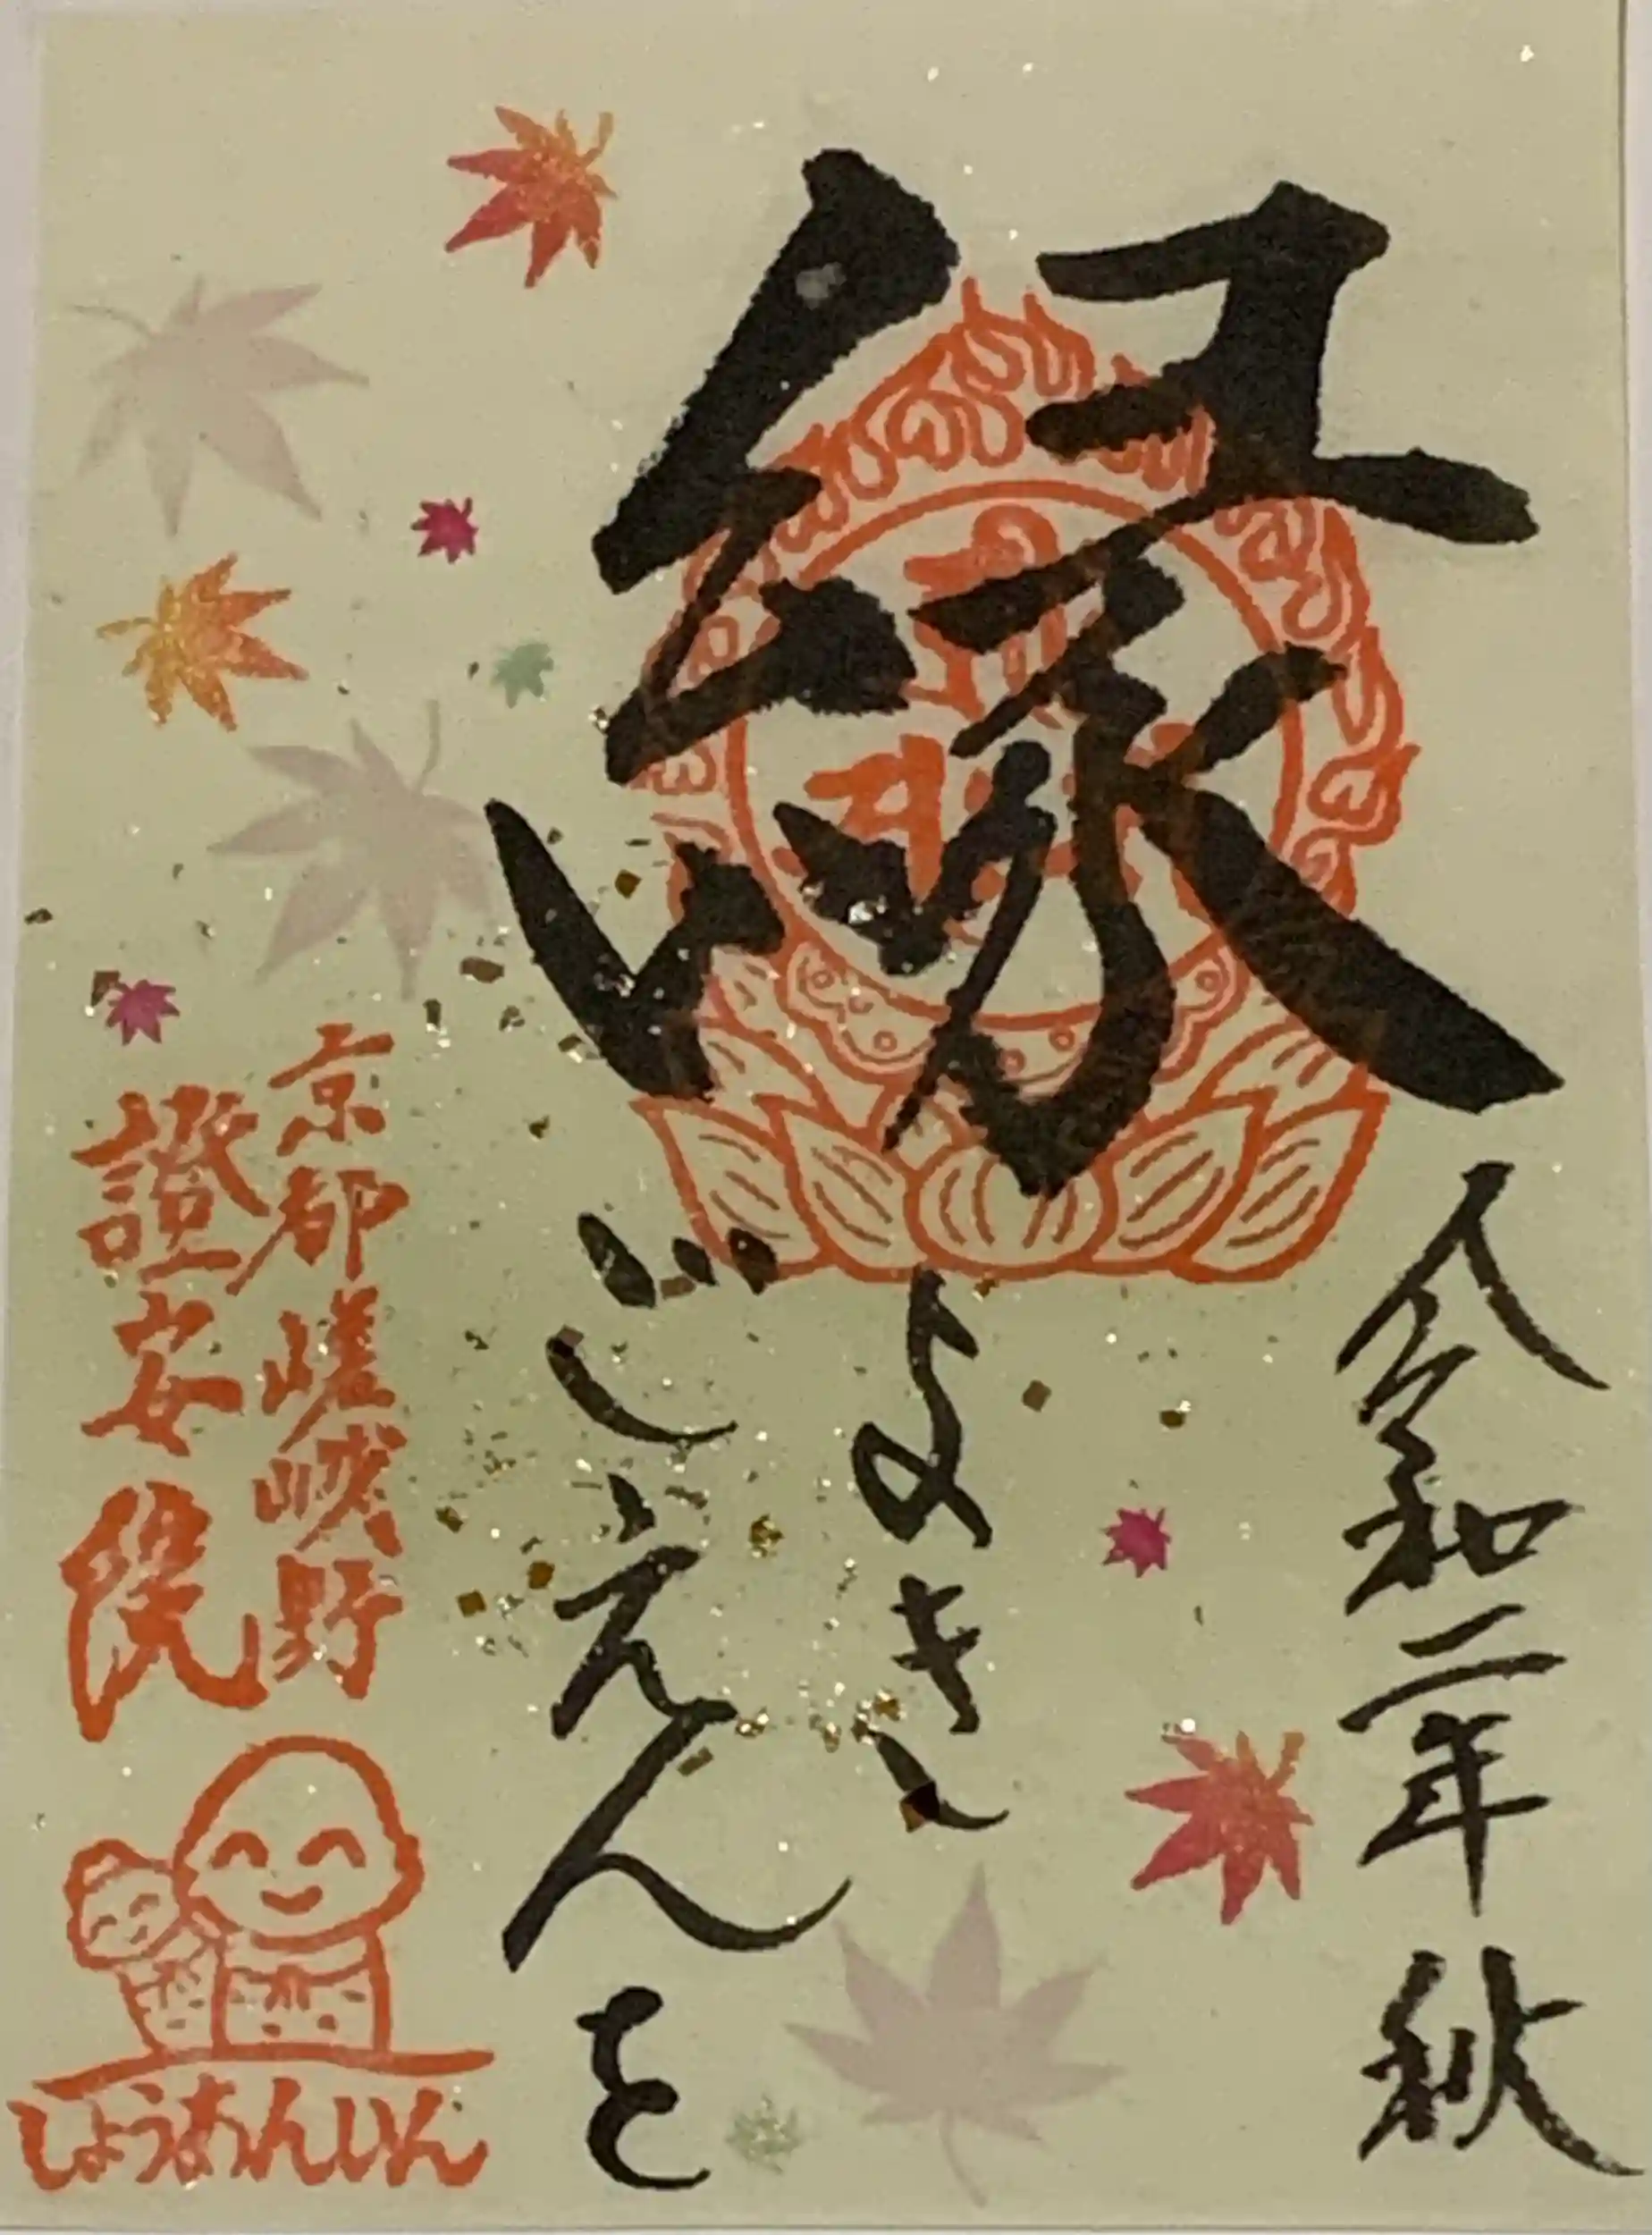 縁
よき
ごえんを
令和二年秋
京都嵯峨野
證安院
しょうあんいん